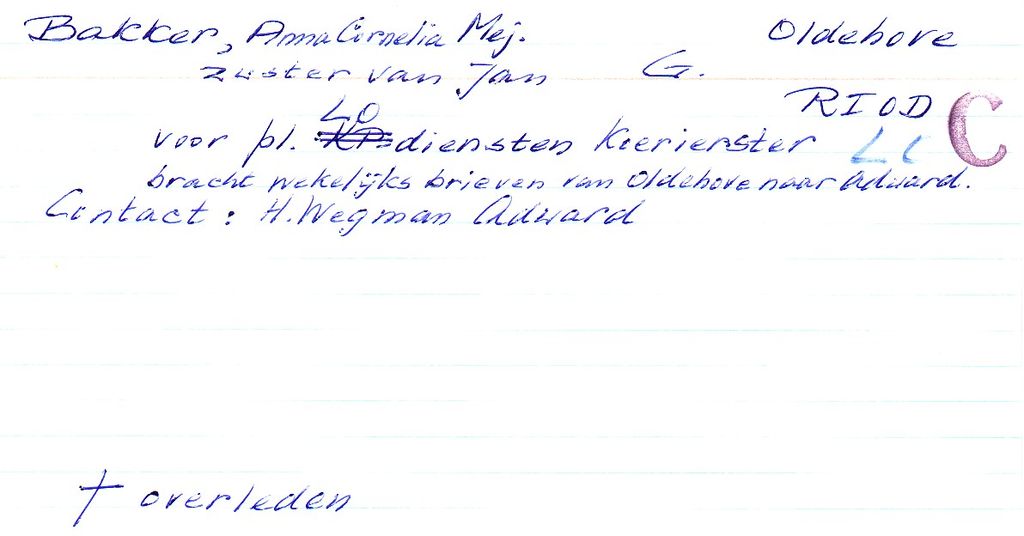 Bakker, Anna Cornelia Mej. Oldehove
zuster van Jan G.
RIOD C
LO
voor pl. KP diensten Koerierster LC
bracht wekelijks brieven van Oldehove naar Adward.
Contact: H. Wegman Adward
† overleden